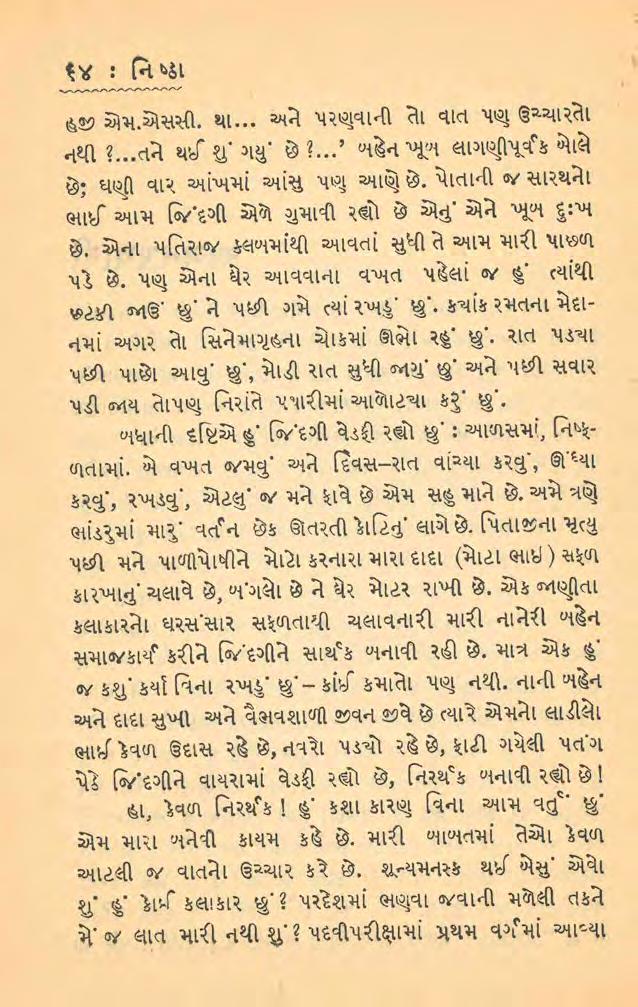 ૬૪ : નિષ્ઠા
હજી એમ.એસસી. થા... અને પરણવાની તો વાત પણ ઉચ્ચારતો
નથી ?...તને થઈ શું ગયું છે ?...’ બહેન ખૂબ લાગણીપૂર્વક બોલે
છે; ઘણી વાર આંખમાં આંસુ પણ આણે છે. પોતાની જ સારથનો
ભાઈ આમ જિંદગી એળે ગુમાવી રહ્યો છે એનું એને ખૂબ દુઃખ
છે. એના પતિરાજ ક્લબમાંથી આવતાં સુધી તે આમ મારી પાછળ
પડે છે. પણ એના ઘેર આવવાના વખત પહેલાં જ હું ત્યાંથી
છટકી જાઉં છું ને પછી ગમે ત્યાં રખડું છું. કયાંક રમતના મેદા-
નમાં અગર તો સિનેમાગૃહના ચોકમાં ઊભો રહું છું. રાત પડયા
પછી પાછો આવું છું, મોડી રાત સુધી જાગું છું અને પછી સવાર
પડી જાય તોપણ નિરાંતે પથારીમાં આળોટયા કરું છું.
બધાની દૃષ્ટિએ હું જિંદગી વેડફી રહ્યો છું : આળસમાં, નિષ્ફ-
ળતામાં. બે વખત જમવું અને દિવસ–રાત વાંચ્યા કરવું, ઊંઘ્યા
કરવું, રખડવું, એટલું જ મને ફાવે છે એમ સહુ માને છે. અમે ત્રણે
ભાંડરુમાં મારું વર્તન છેક ઊતરતી કોટિનું લાગે છે. પિતાજીના મૃત્યુ
પછી મને પાળીપોષીને મોટો કરનારા મારા દાદા (મોટા ભાઇ) સફળ
કારખાનું ચલાવે છે, બંગલો છે ને ઘેર મોટર રાખી છે. એક જાણીતા
કલાકારનો ઘરસંસાર સફળતાથી ચલાવનારી મારી નાનેરી બહેન
સમાજકાર્ય કરીને જિંદગીને સાર્થક બનાવી રહી છે. માત્ર એક હું
જ કશું કર્યા વિના રખડું છું – કાંઈ કમાતો પણ નથી. નાની બહેન
અને દાદા સુખી અને વૈભવશાળી જીવન જીવે છે ત્યારે એમનો લાડીલો
ભાઈ કેવળ ઉદાસ રહે છે, નવરો પડયો રહે છે, ફાટી ગયેલી પતંગ
પેઠે જિંદગીને વાયરામાં વેડફી રહ્યો છે, નિરર્થક બનાવી રહ્યો છે!
હા, કેવળ નિરર્થક ! હું કશા કારણ વિના આમ વર્તું છું
એમ મારા બનેવી કાયમ કહે છે. મારી બાબતમાં તેઓ કેવળ
આટલી જ વાતનો ઉચ્ચાર કરે છે. શૂન્યમનસ્ક થઈ બેસું એવો
શું હું કોઈ કલાકાર છું ? પરદેશમાં ભણવા જવાની મળેલી તકને
મેં જ લાત મારી નથી શું ? પદવીપરીક્ષામાં પ્રથમ વર્ગમાં આવ્યા